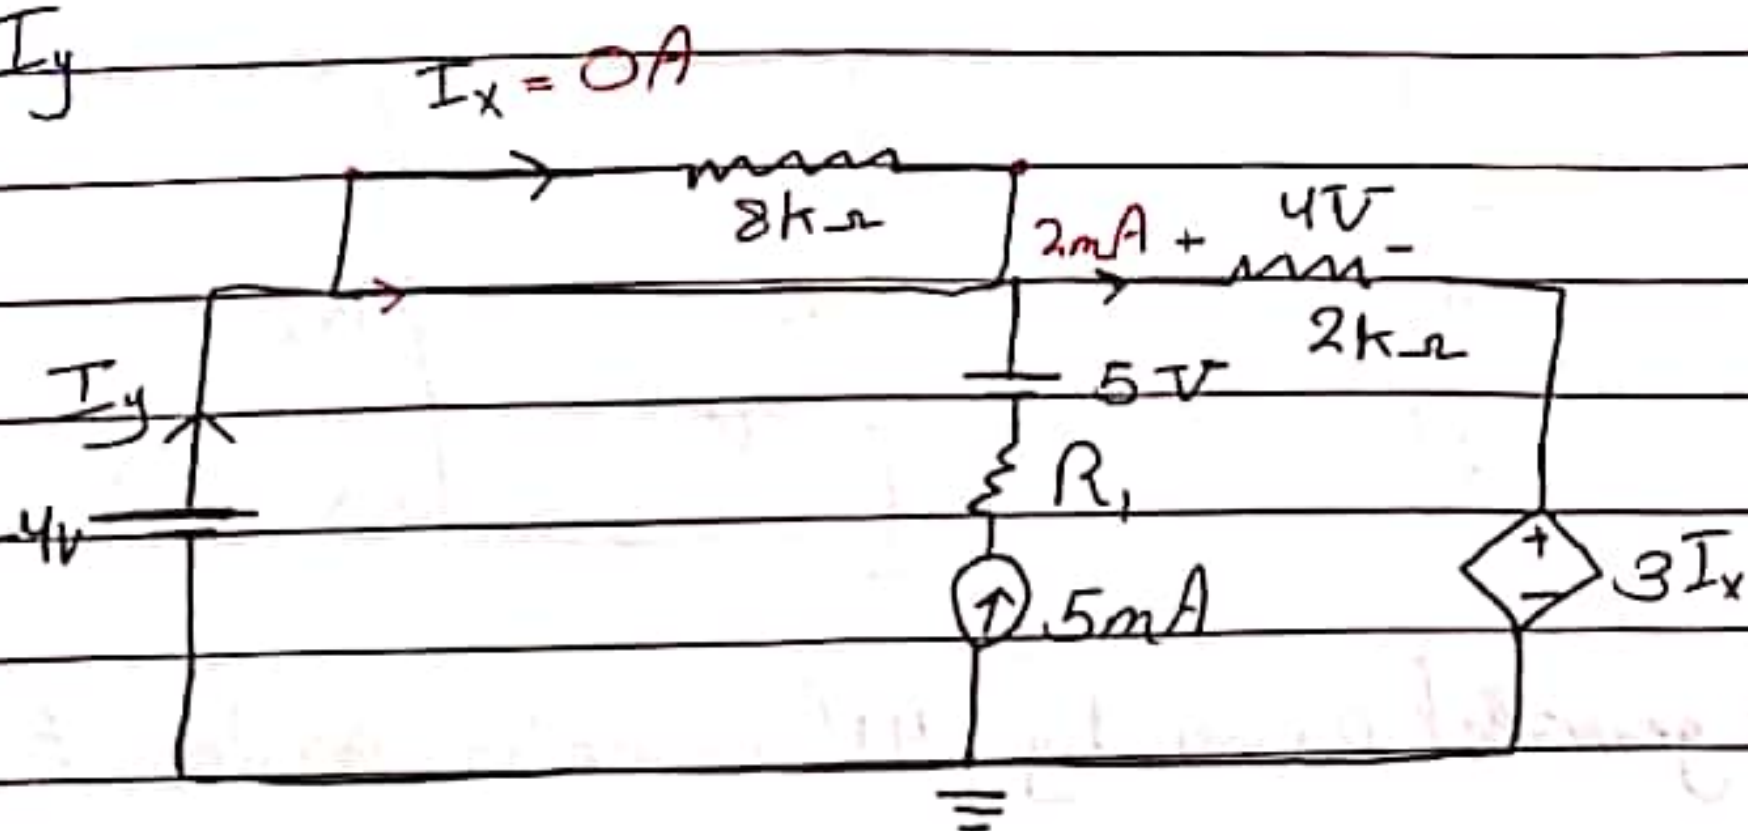 Iy
Ix = 0A
8kΩ
2mA + 4V -
2kΩ
Iy
5V
R1
4v
.5mA
+
-
3Ix